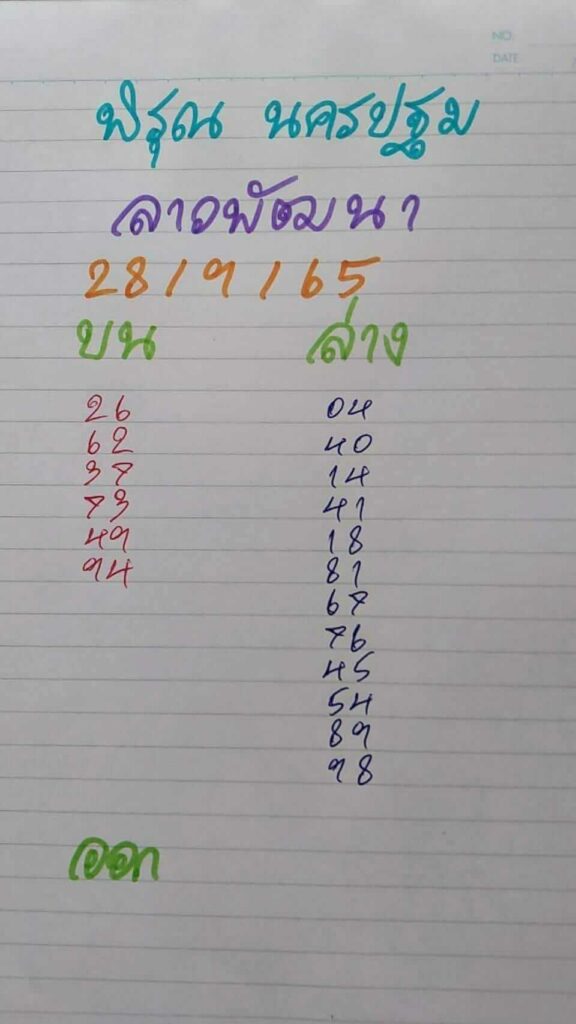 NO.
DATE
พิรุณ นครปฐม
ลาวพัฒนา
28/9/65
บน ล่าง
26 04
62 40
37 14
73 41
49 18
94 81
67
76
45
54
89
98
ออก